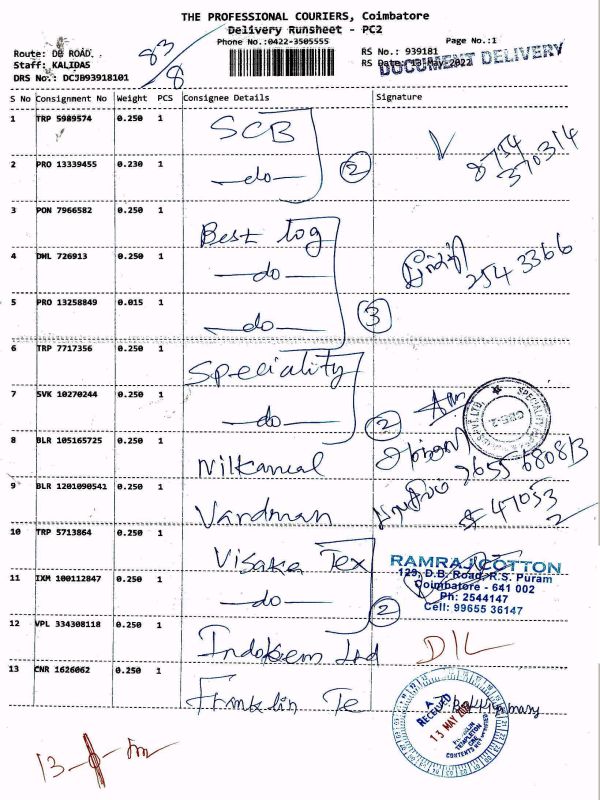 THE PROFESSIONAL COURIERS, Coimbatore
Delivery Runsheet - PC2
Phone No.:0422-3505555
Page No.:1
Route: DB ROAD
Staff: KALIDAS
DRS No.: DCJB93918101
83/8
RS No.: 939181
RS Date: 13-May-2022
DOCUMENT DELIVERY
S No Consignment No Weight PCS Consignee Details Signature
1 TRP 5989574 0.250 1 SCB
8754
370314
2 PRO 13339455 0.230 1 —do— 2
3 PON 7966582 0.250 1 Best log
4 DML 726913 0.250 1 —do— 254 3366
5 PRO 13258849 0.015 1 —do— 3
6 TRP 7717356 0.250 1 Speciality
7 SVK 10270244 0.250 1 —do— 2
8 BLR 105165725 0.250 1 Nilkamal
9 BLR 1201090541 0.250 1 Vardman
10 TRP 5713864 0.250 1 Visaka Tex
RAMRAJ COTTON
129, D.B. Road, R.S. Puram
Coimbatore - 641 002
Ph: 2544147
Cell: 99655 36147
11 IXM 100112847 0.250 1 —do— 2
12 VPL 334308118 0.250 1 Indokem Ltd DIL
13 CNR 1626062 0.250 1 Franklin Te
RECEIVED
13 MAY 2022